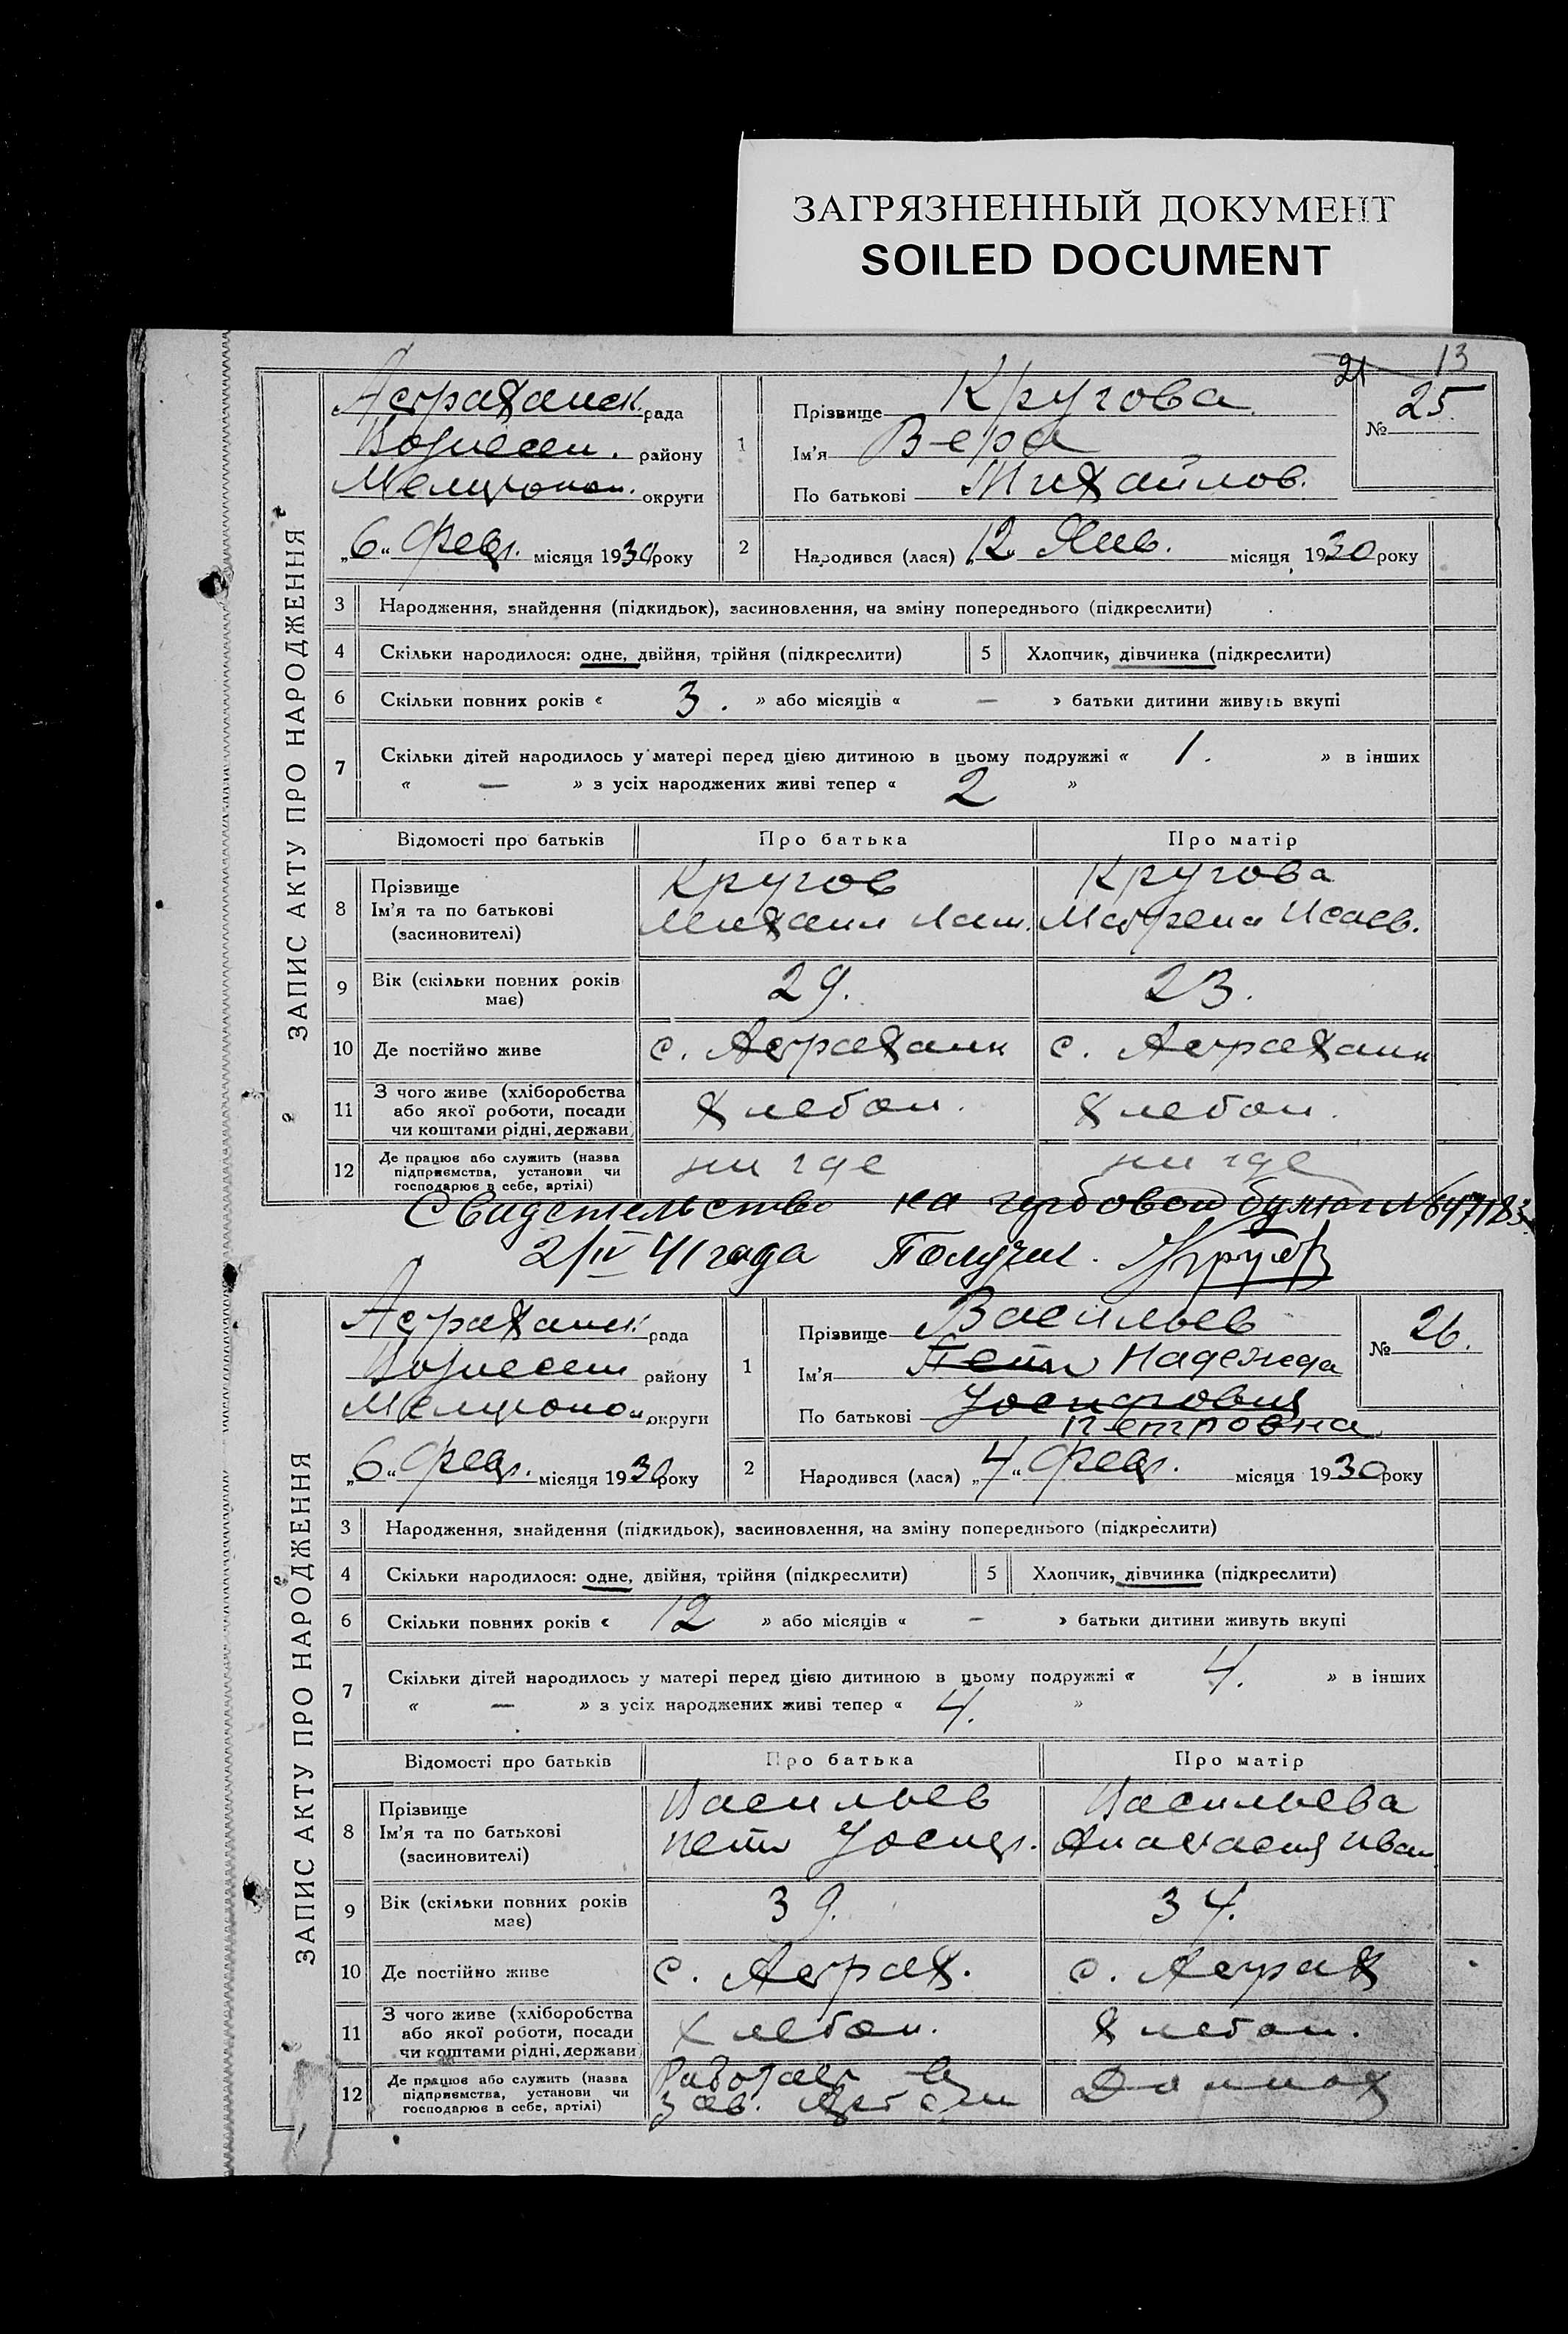 ЗАГРЯЗНЕННЫЙ ДОКУМЕНТ
SOILED DOCUMENT
21 13
ЗАПИС АКТУ ПРО НАРОДЖЕННЯ
Астраханск. рада
Вознесен. району
Мелитопол. округи
„6“ Февр. місяця 1930 року
1
Прізвище Кругова
Ім'я Вера
По батькові Михайлов.
№ 25.
2 Народився (лася) „12“ Янв. місяця 1930 року
3 Народження, знайдення (підкидьок), засиновлення, на зміну попереднього (підкреслити)
4 Скільки народилося: одне, двійня, трійня (підкреслити) 5 Хлопчик, дівчинка (підкреслити)
6 Скільки повних років « 3. » або місяців « — » батьки дитини живуть вкупі
7 Скільки дітей народилось у матері перед цією дитиною в цьому подружжі « 1. » в інших
« — » з усіх народжених живі тепер « 2 »
Відомості про батьків Про батька Про матір
8 Прізвище Ім'я та по батькові (засиновителі)
Кругов Кругова
Михаил Матрена Исаев.
9 Вік (скільки повних років має) 29. 23.
10 Де постійно живе с. Астраханк с. Астраханк
11 З чого живе (хліборобства або якої роботи, посади чи коштами рідні, держави) хлебоп. хлебоп.
12 Де працює або служить (назва підприємства, установи чи господарює в себе, артілі) ни где ни где
Свидетельство на гербовой бумаге №
2/IV 41 года Получил. Кругов
ЗАПИС АКТУ ПРО НАРОДЖЕННЯ
Астраханск. рада
Вознесен району
Мелитопол. округи
„6“ Февр. місяця 1930 року
1
Прізвище Васильев
Ім'я Петр Надежда
По батькові Иосифович
Петровна
№ 26.
2 Народився (лася) „4“ Февр. місяця 1930 року
3 Народження, знайдення (підкидьок), засиновлення, на зміну попереднього (підкреслити)
4 Скільки народилося: одне, двійня, трійня (підкреслити) 5 Хлопчик, дівчинка (підкреслити)
6 Скільки повних років « 12 » або місяців « — » батьки дитини живуть вкупі
7 Скільки дітей народилось у матері перед цією дитиною в цьому подружжі « 4. » в інших
« — » з усіх народжених живі тепер « 4. »
Відомості про батьків Про батька Про матір
8 Прізвище Ім'я та по батькові (засиновителі)
Васильев Васильева
Петр Иосиф. Анастасия Иван
9 Вік (скільки повних років має) 39. 34.
10 Де постійно живе с. Астрах. с. Астрах
11 З чого живе (хліборобства або якої роботи, посади чи коштами рідні, держави) хлебоп. хлебоп.
12 Де працює або служить (назва підприємства, установи чи господарює в себе, артілі)
Работает в
зав.